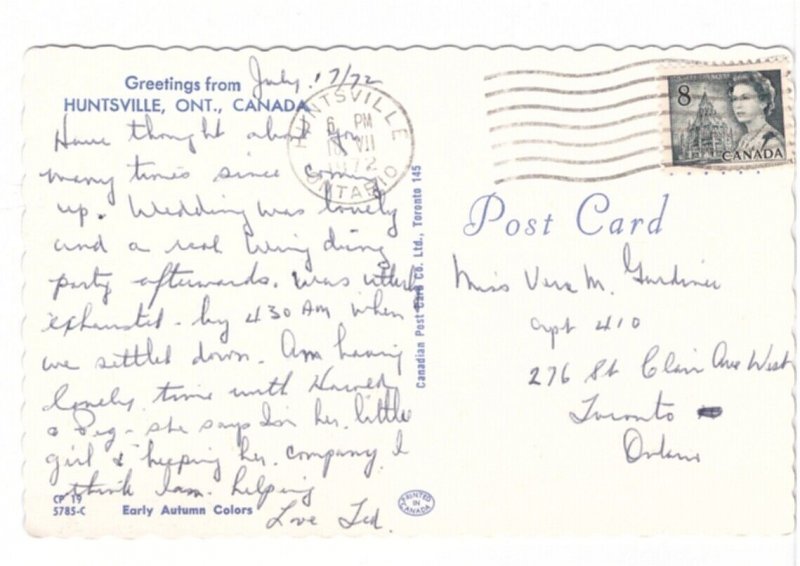 Greetings from July 17/72
HUNTSVILLE, ONT., CANADA
Have thought about you
many times since coming
up. Wedding was lovely
and a real wing ding
party afterwards. Was utterly
exhausted - by 430 AM when
we settled down. Am having
lovely time with
& Peg - she says I'm her little
girl & keeping her company I
think I am helping
Love Ted.
CP 19
5785-C Early Autumn Colors
HUNTSVILLE
6 PM
VII
1972
ONTARIO
Canadian Post Card Co. Ltd., Toronto 145
PRINTED IN CANADA
8
CANADA
Post Card
Miss Vera M. Gardiner
Apt 410
276 St Clair Ave West
Toronto
Ontario